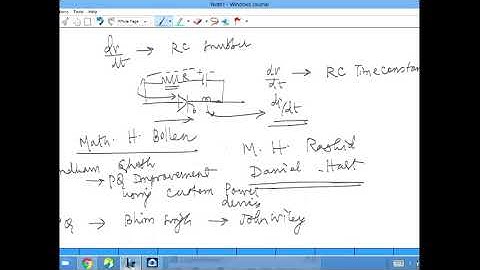 Note1 - Windows Journal
Whole Page
dv/dt → RC snubber
dv/dt → RC Time constant
di/dt
Math. H. Bollen
M. H. Rashid
Ghosh
Daniel Hart
→ PQ Improvement
using Custom Power
devices
PQ → Bhim Singh → John Wiley